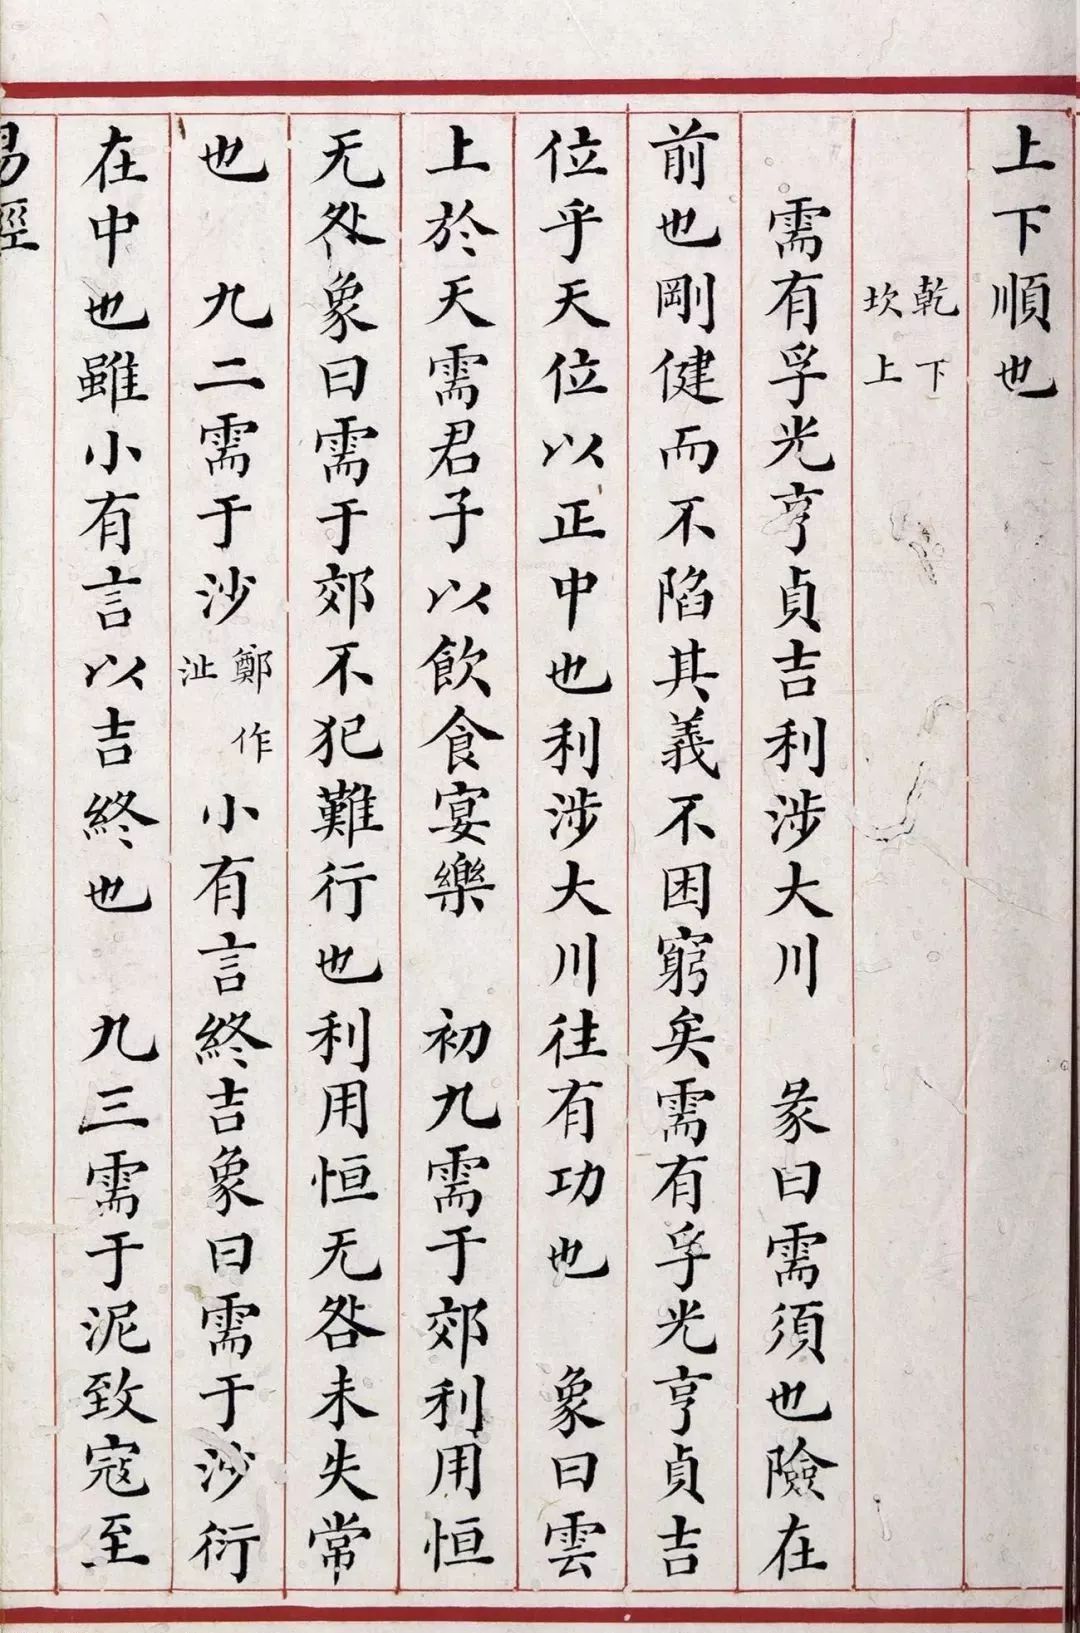 上下順也
乾下
坎上
需有孚光亨貞吉利涉大川　彖曰需須也險在
前也剛健而不陷其義不困窮矣需有孚光亨貞吉
位乎天位以正中也利涉大川往有功也　象曰雲
上於天需君子以飲食宴樂　初九需于郊利用恒
无咎象曰需于郊不犯難行也利用恒无咎未失常
也　九二需于沙鄭作沚小有言終吉象曰需于沙衍
在中也雖小有言以吉終也　九三需于泥致寇至
易經